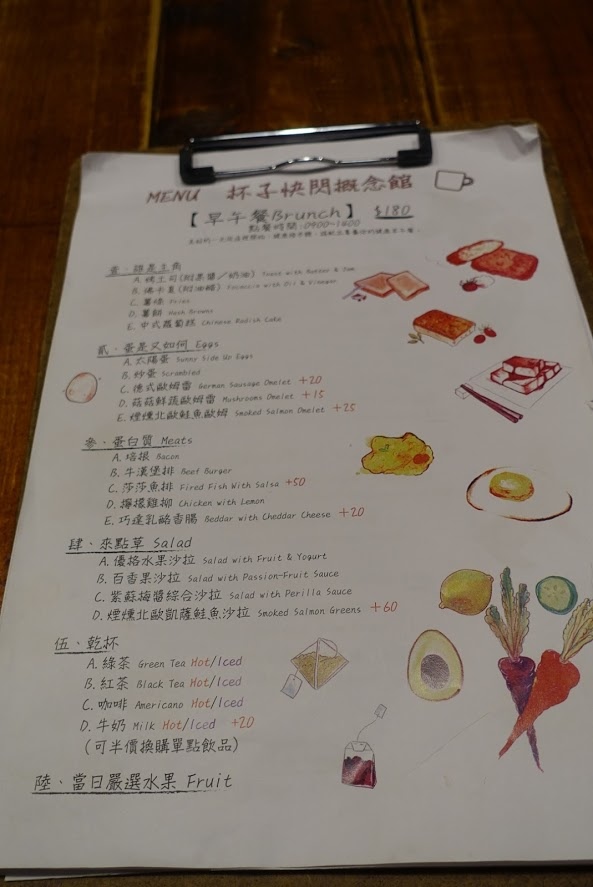 MENU 杯子快閃概念館
【早午餐Brunch】 $180
點餐時間:0900~1400
壹、誰是主角
A.烤土司(附果醬/奶油) Toast with Butter & Jam
B.佛卡夏(附油醋) Focaccia with Oil & Vinegar
C.薯條 Fries
D.薯餅 Hash Browns
E.中式蘿蔔糕 Chinese Radish Cake
貳、蛋是又如何 Eggs
A.太陽蛋 Sunny Side Up Eggs
B.炒蛋 Scrambled
C.德式歐姆蕾 German Sausage Omelet +20
D.菇菇鮮蔬歐姆蕾 Mushrooms Omelet +15
E.煙燻北歐鮭魚歐姆 Smoked Salmon Omelet +25
參、蛋白質 Meats
A.培根 Bacon
B.牛漢堡排 Beef Burger
C.莎莎魚排 Fired Fish With Salsa +50
D.檸檬雞柳 Chicken with Lemon
E.巧達乳酪香腸 Beddar with Cheddar Cheese +20
肆、來點草 Salad
A.優格水果沙拉 Salad with Fruit & Yogurt
B.百香果沙拉 Salad with Passion-Fruit Sauce
C.紫蘇梅醬綜合沙拉 Salad with Perilla Sauce
D.煙燻北歐凱薩鮭魚沙拉 Smoked Salmon Greens +60
伍、乾杯
A.綠茶 Green Tea Hot/Iced
B.紅茶 Black Tea Hot/Iced
C.咖啡 Americano Hot/Iced
D.牛奶 Milk Hot/Iced +20
(可半價換購單點飲品)
陸、當日嚴選水果 Fruit